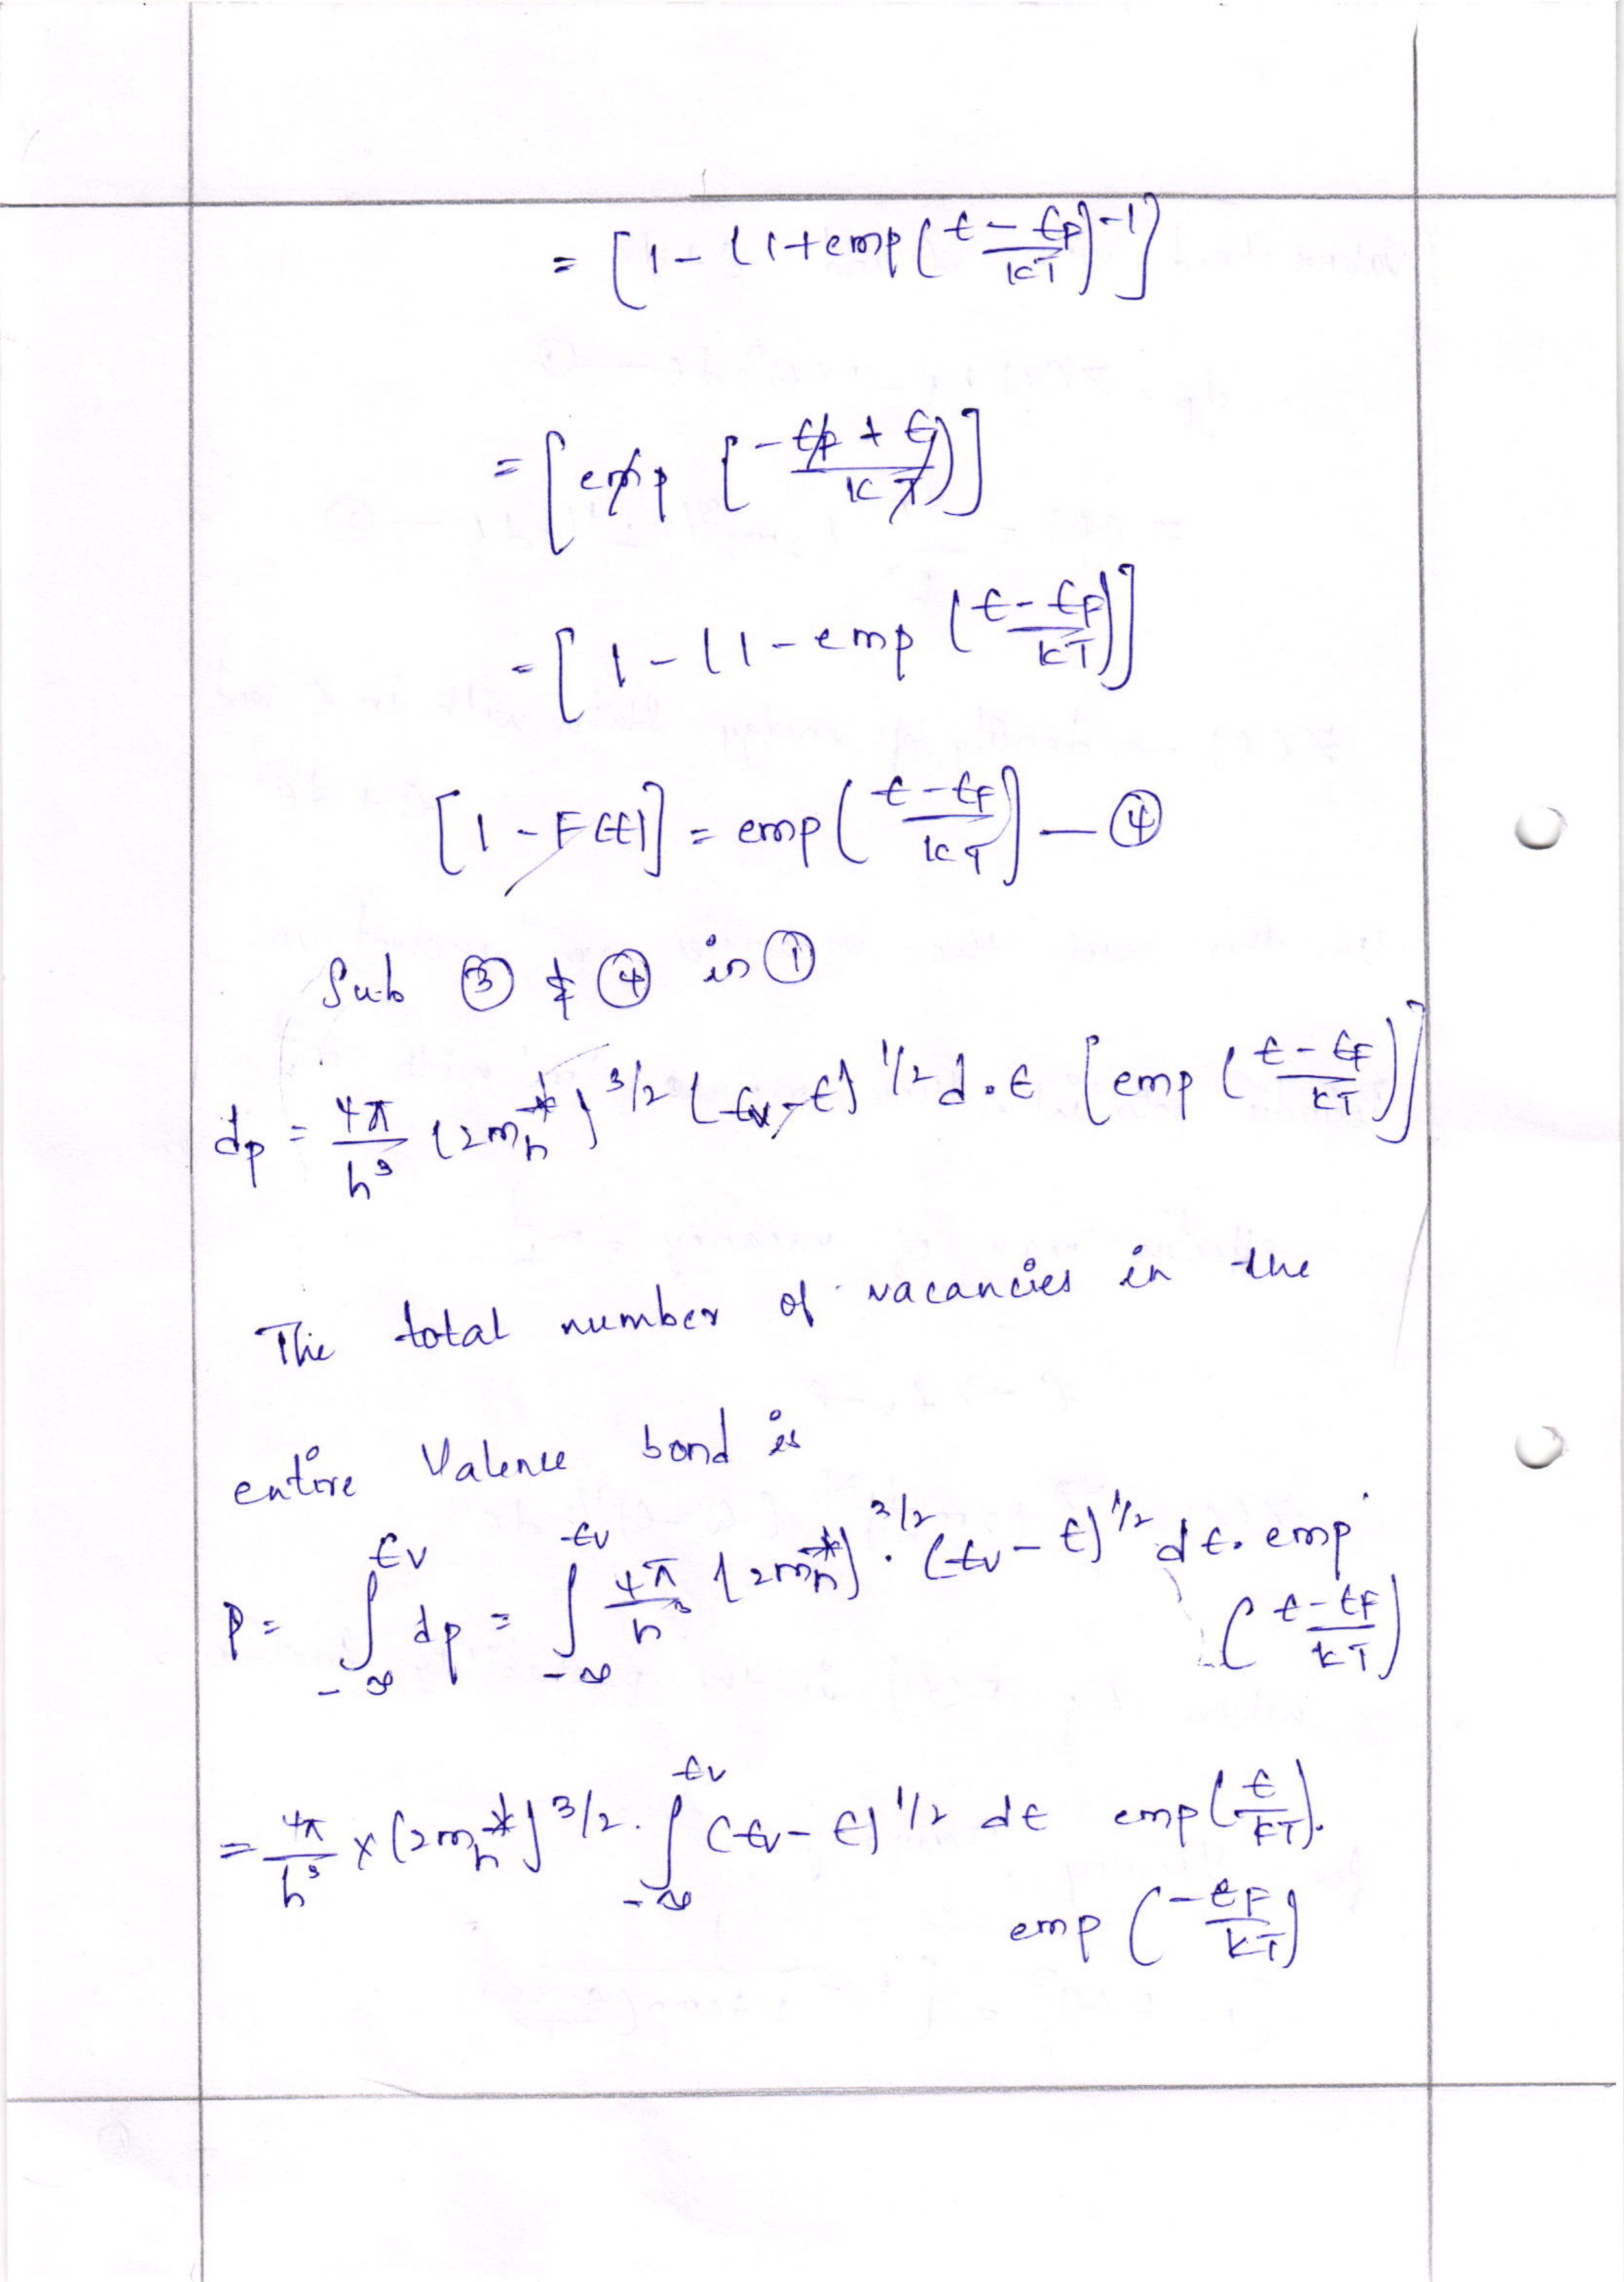 = [1 - (1 + emp (E - EF / KT)^-1]
= [emp [-EF + E / KT)]
= [1 - (1 - emp (E - EF / KT)]
[1 - F(E)] = emp (E - EF / KT) — ④
Sub ③ & ④ in ①
dp = 4π / h³ (2mh*)^3/2 (Ev - E)^1/2 d.E [emp (E - EF / KT)]
The total number of vacancies in the
entire Valence bond is
P = ∫_-∞^Ev dp = ∫_-∞^Ev 4π / h³ (2mh*)^3/2 . (Ev - E)^1/2 dE. emp
(E - EF / KT)
= 4π / h³ × (2mh*)^3/2 . ∫_-∞^Ev (Ev - E)^1/2 dE emp (E / KT).
emp (-EF / KT)